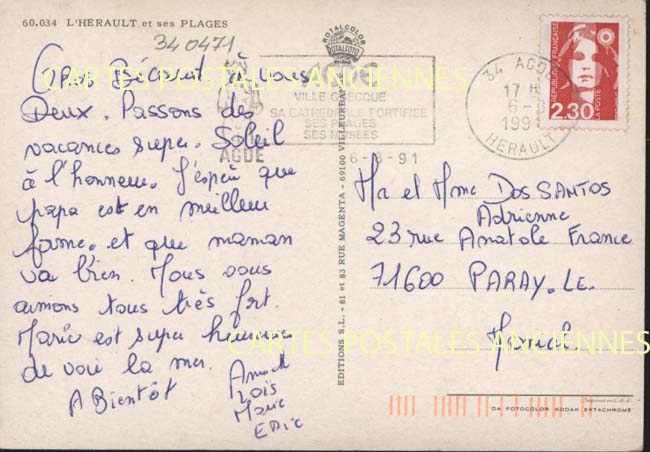 60.034 L'HERAULT et ses PLAGES
340471
ROTALCOLOR
ROTALFOTO
Gros Bécaut à vous
Deux. Passons des
vacances super. Soleil
à l'honneur. J'espère que
papa est en meilleur
forme. et que maman
va bien. Nous vous
aimions tous très fort.
Marie est super heureuse
de voir la mer.
A Bientôt
Loïs
Marie
Eric
VILLE GRECQUE
SA CATHEDRALE FORTIFIEE
SES PLAGES
SES MUSEES
AGDE
6-8-91
34 AGDE
17 H
6-8
199
HERAULT
REPUBLIQUE FRANÇAISE
2,30
LA POSTE
EDITIONS S.L. - 81 et 83 RUE MAGENTA - 69100 VILLEURBANNE
Mr et Mme DOS SANTOS
Adrienne
23 rue Anatole France
71600 PARAY. LE.
Monial.
DA FOTOCOLOR KODAK EKTACHROME
CARTES POSTALES ANCIENNES
CARTES POSTALES ANCIENNES